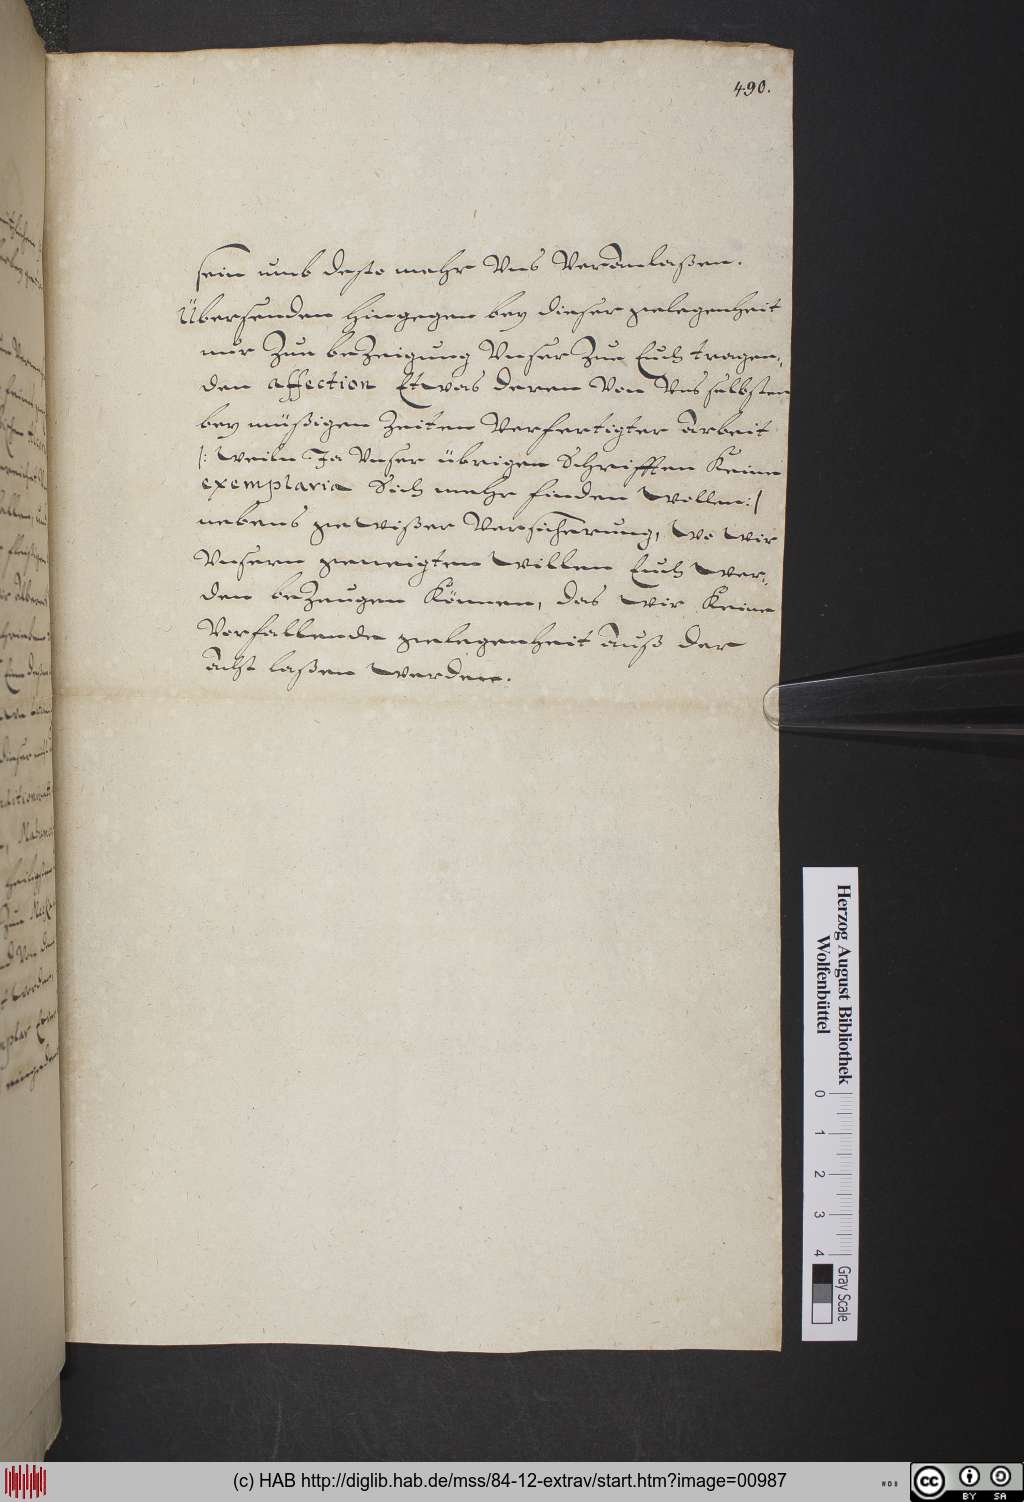 490.
sein umb desto mehr Uns Veranlaßen.
Übersenden hingegen bey dieser gelegenheit
nur Zue beZeigung Unser Zue Euch tragen,
den affection Etwas deren Von Uns selbsten
bey müßigen Zeiten Verfertigter Arbeit
/: Weiln Ja Unser übrigen Schrifften Keine
exemplaria Sich mehr finden Wollen :/
nebens geWißer Versicherung, Wo Wir
Unsern geneigten Willen Euch Wer,
den beZeugen Können, das Wir Keine
Vorfallende gelegenheit auß der
acht laßen Werden.
Herzog August Bibliothek
Wolfenbüttel
0 1 2 3 4
Gray Scale
(c) HAB http://diglib.hab.de/mss/84-12-extrav/start.htm?image=00987
cc BY SA